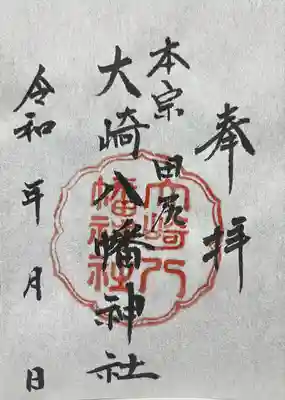 奉拝
本宗 田尻
大崎八幡神社
大崎八幡神社
令和 年 月 日